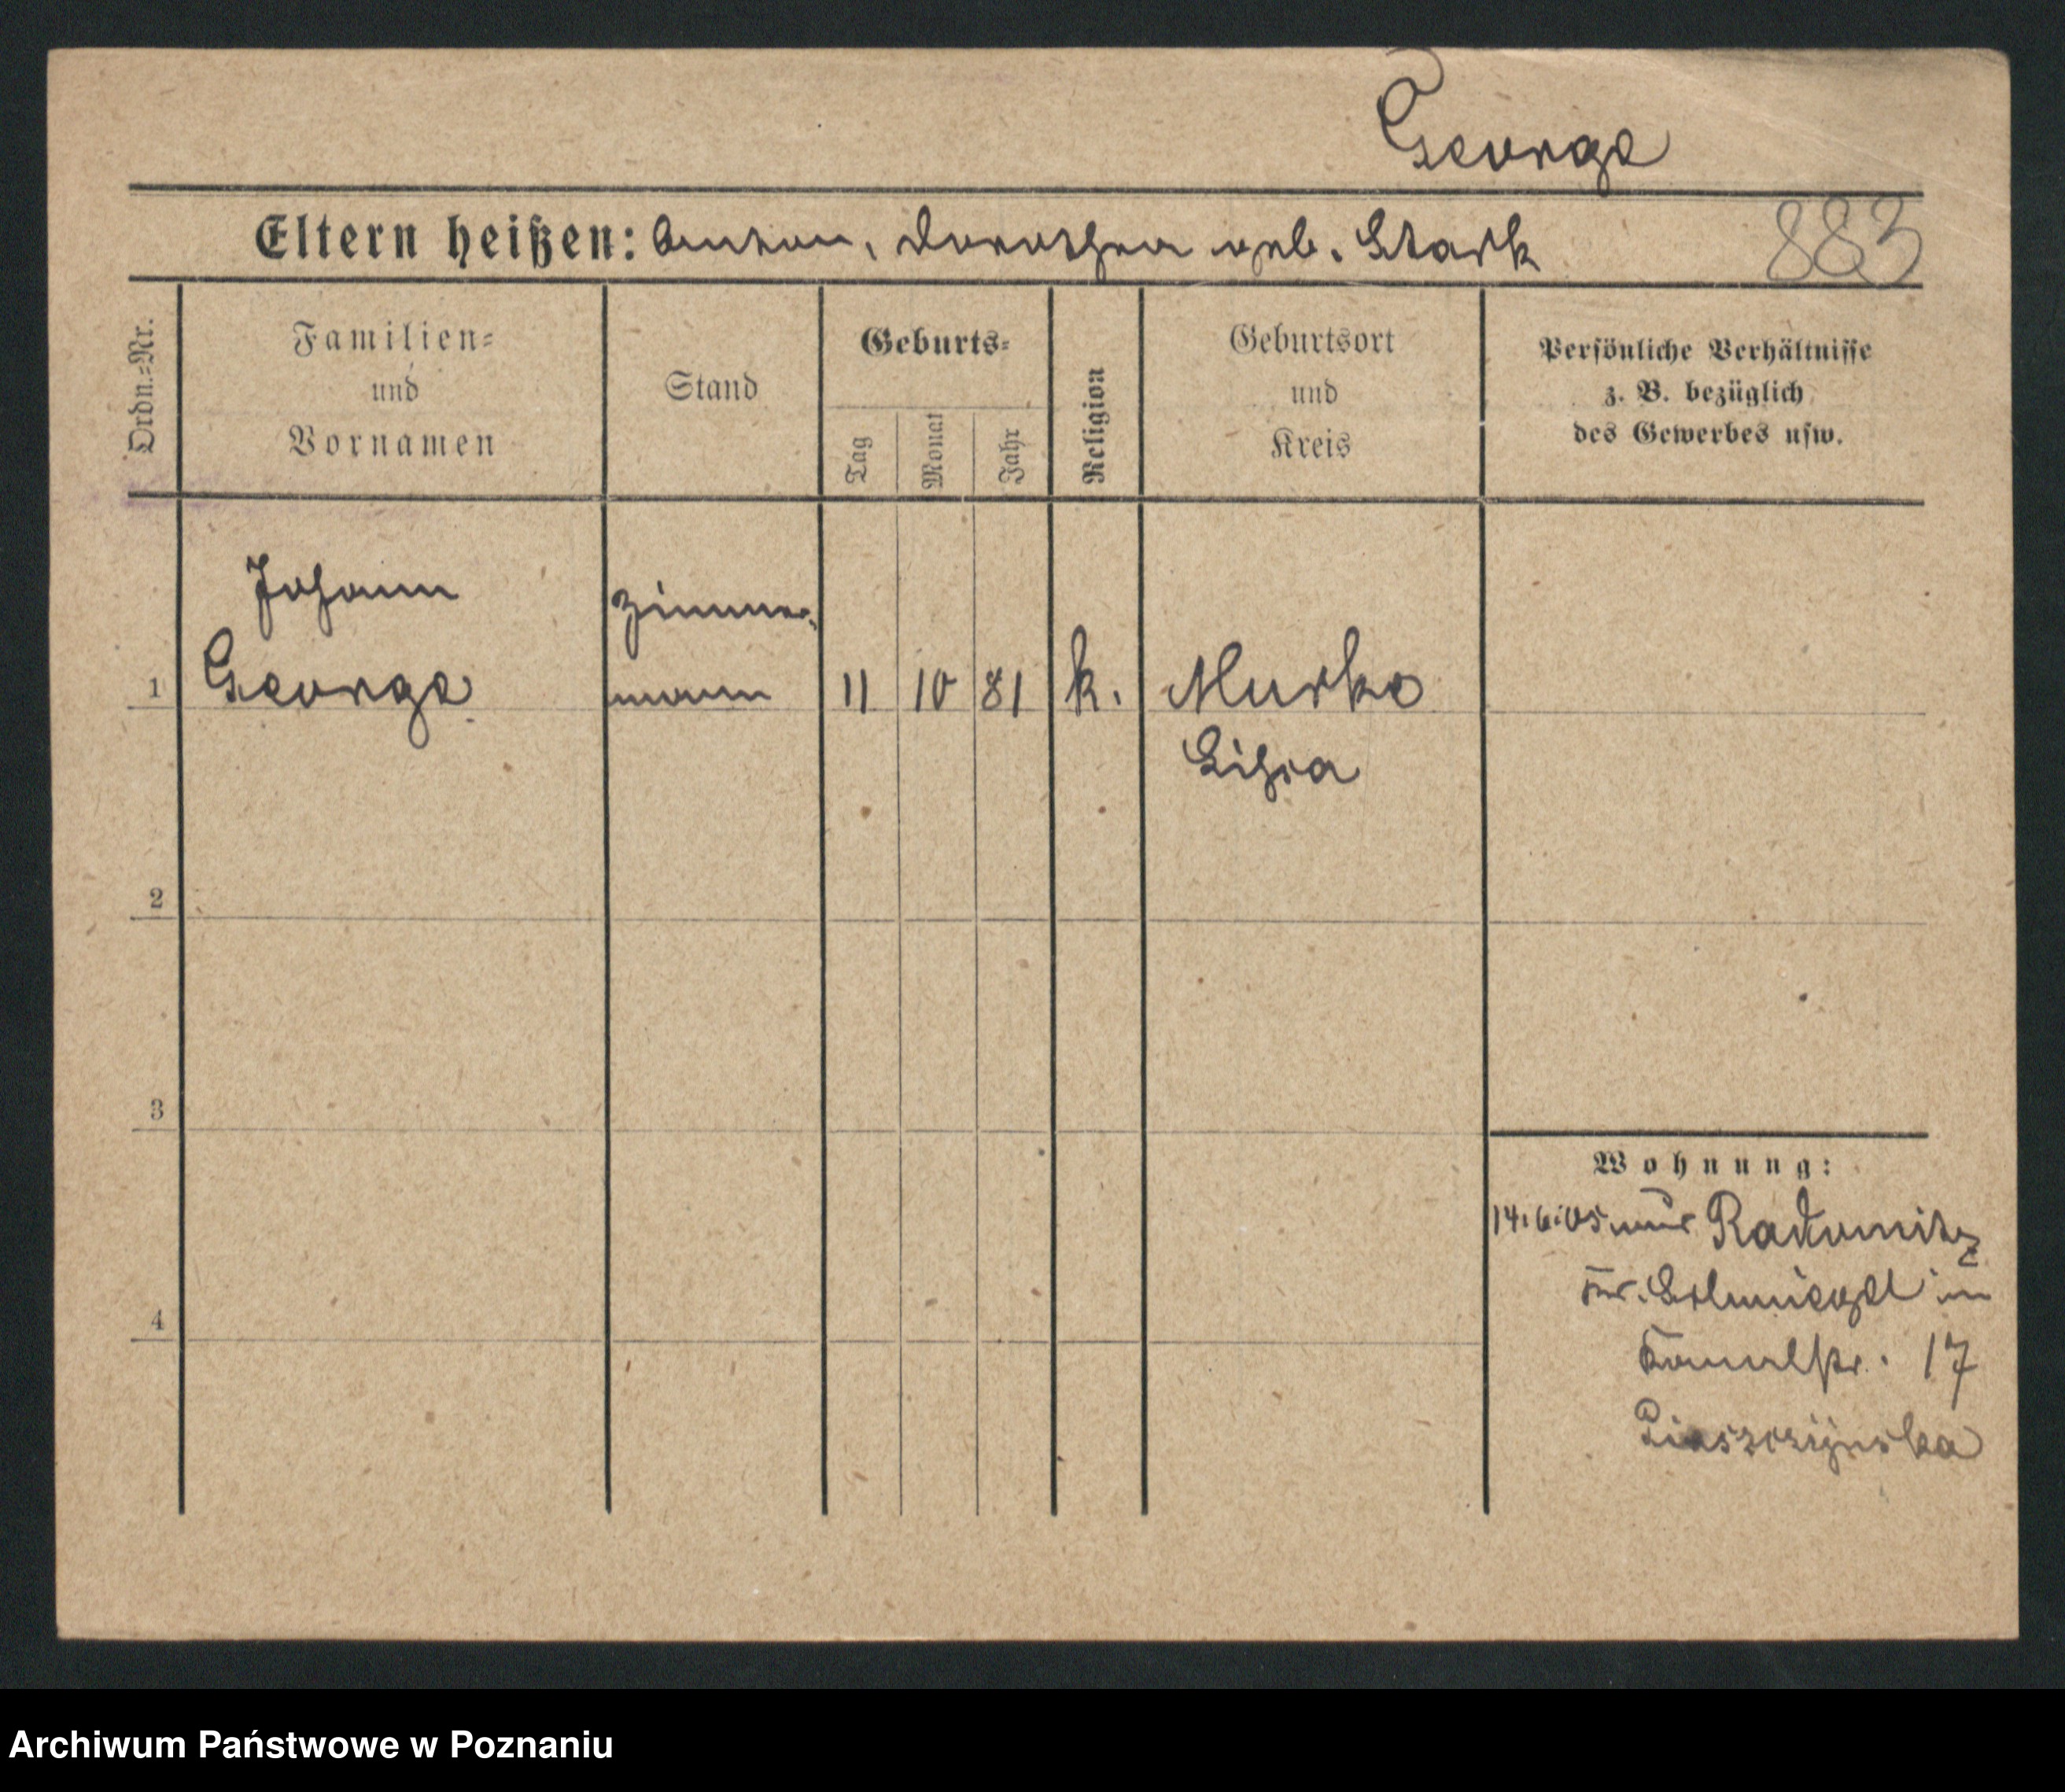 George
Eltern heißen: Anton, Dorothea geb. Stark 883
Ordn.-Nr.
Familien-
und
Vornamen
Stand
Geburts-
Tag
Monat
Jahr
Religion
Geburtsort
und
Kreis
Persönliche Verhältnisse
z. B. bezüglich
des Gewerbes usw.
Johann Zimmer-
1 George mann 11 10 81 k. Murke
2
3
4
Wohnung:
14.6.05 aus Radomitz
Kr. Schmiegel in
Kanalstr. 17
Archiwum Państwowe w Poznaniu